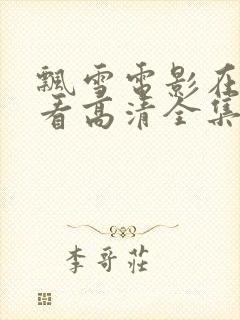 飘雪电影在
看高清全集
李哥庄